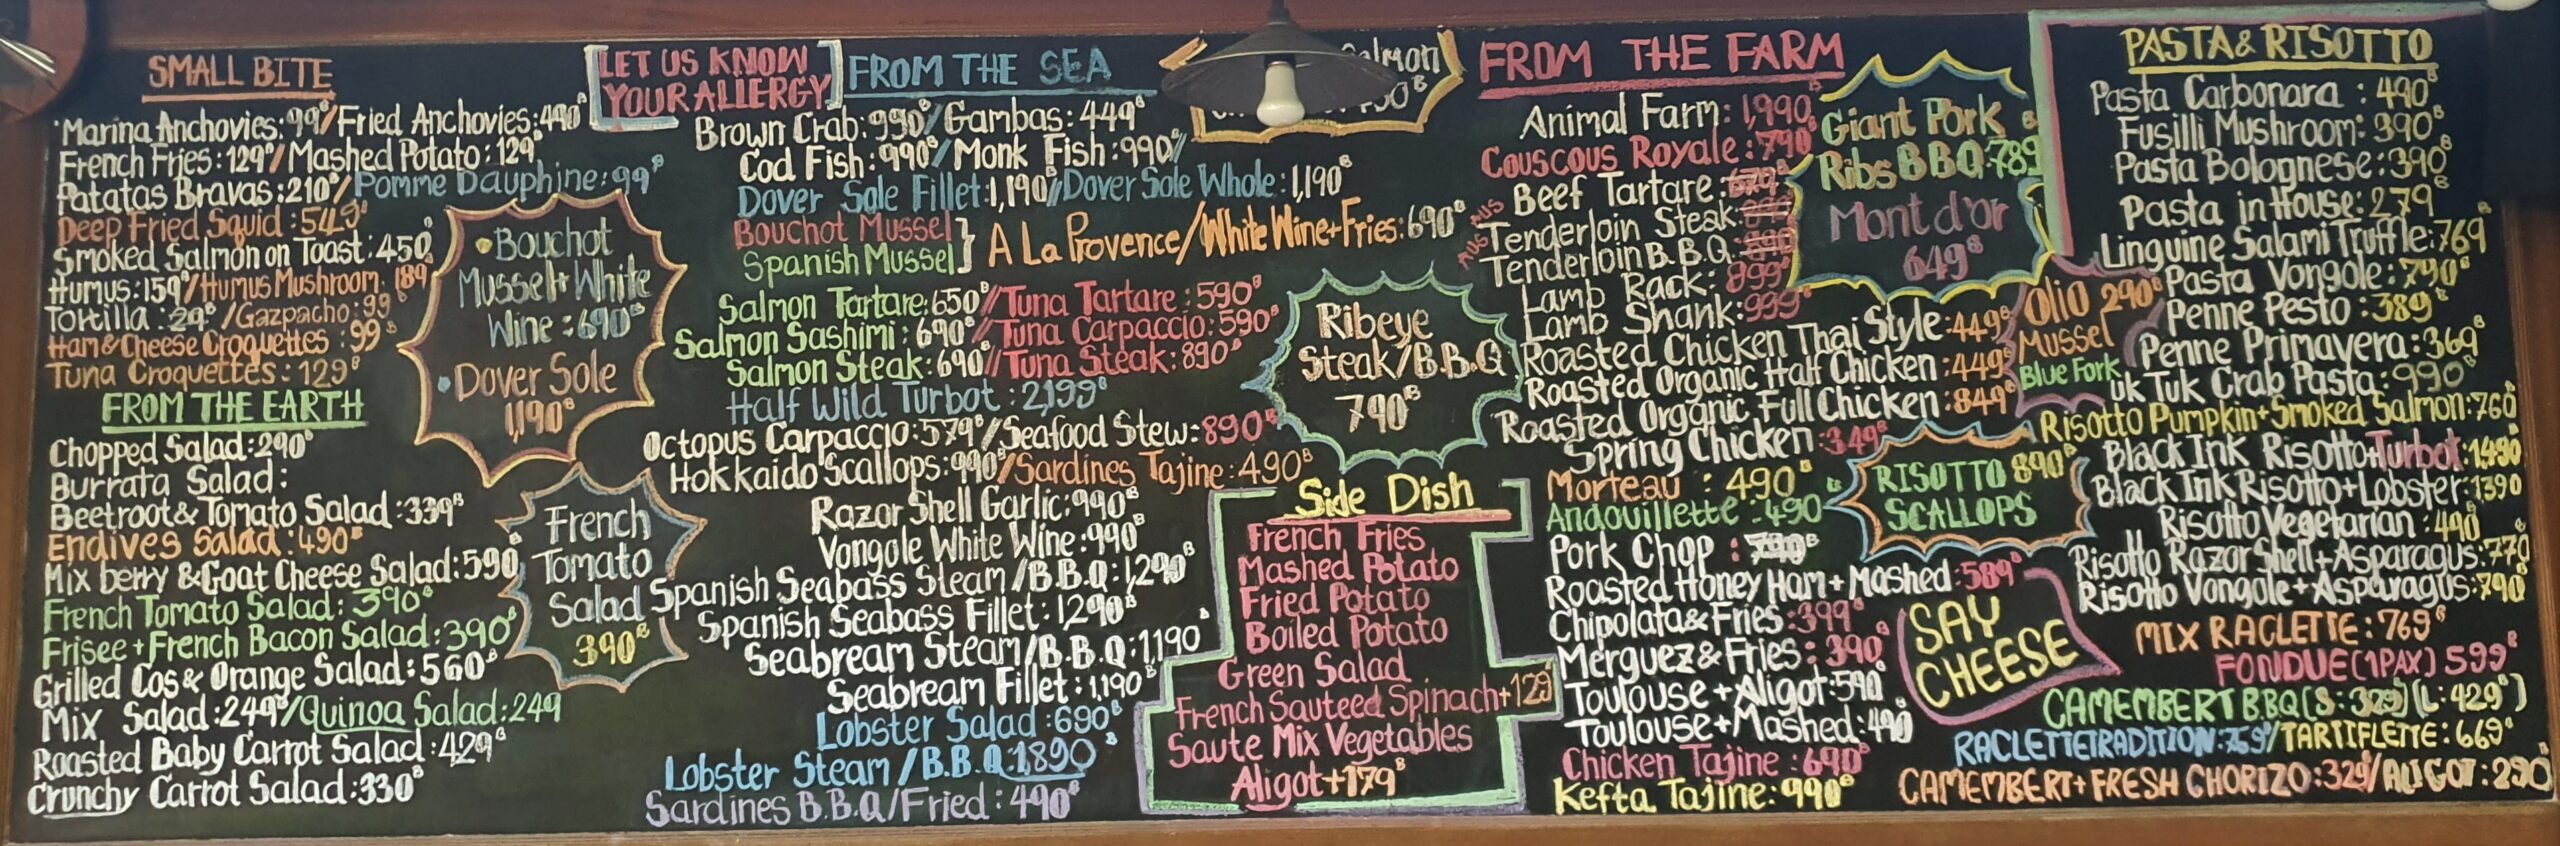 SMALL BITE
Marina Anchovies: 99฿/Fried Anchovies: 490฿
French Fries: 129฿/Mashed Potato: 129฿
Patatas Bravas: 210฿/Pomme Dauphine: 99฿
Deep Fried Squid: 549฿
Smoked Salmon on Toast: 450฿
Humus: 159฿/Humus Mushroom: 189
Tortilla: 29฿/Gazpacho: 99฿
Ham & Cheese Croquettes: 99฿
Tuna Croquettes: 129฿
FROM THE EARTH
Chopped Salad: 290฿
Burrata Salad:
Beetroot & Tomato Salad: 339฿
Endives Salad: 490฿
Mix berry & Goat Cheese Salad: 590฿
French Tomato Salad: 390฿
Frisee + French Bacon Salad: 390฿
Grilled Cos & Orange Salad: 560฿
Mix Salad: 249฿/Quinoa Salad: 249
Roasted Baby Carrot Salad: 429฿
Crunchy Carrot Salad: 330฿
Bouchot
Mussel + White
Wine: 690฿
Dover Sole
1,190฿
French
Tomato
Salad
390฿
LET US KNOW
YOUR ALLERGY
FROM THE SEA
Brown Crab: 990฿/Gambas: 449฿
Cod Fish: 990฿/Monk Fish: 990/
Dover Sole Fillet: 1,190//Dover Sole Whole: 1,190฿
Bouchot Mussel
Spanish Mussel
} A La Provence/White Wine + Fries: 690฿
Salmon Tartare: 650฿//Tuna Tartare: 590฿
Salmon Sashimi: 690฿//Tuna Carpaccio: 590฿
Salmon Steak: 690฿//Tuna Steak: 890฿
Half Wild Turbot: 2,199฿
Octopus Carpaccio: 579฿/Seafood Stew: 890฿
Hokkaido Scallops: 990฿/Sardines Tajine: 490฿
Razor Shell Garlic: 990฿
Vongole White Wine: 990฿
Spanish Seabass Steam/B.B.Q: 1,290฿
Spanish Seabass Fillet: 1,290฿
Seabream Steam/B.B.Q: 1,190฿
Seabream Fillet: 1,190฿
Lobster Salad: 690฿
Lobster Steam/B.B.Q: 1,890฿
Sardines B.B.Q/Fried: 490฿
Ribeye
Steak/B.B.Q
790฿
Side Dish
French Fries
Mashed Potato
Fried Potato
Boiled Potato
Green Salad
French Sauteed Spinach + 129
Saute Mix Vegetables
Aligot + 179฿
FROM THE FARM
Animal Farm: 1,990฿
Couscous Royale: 790฿
Beef Tartare:
AUS Tenderloin Steak:
AUS Tenderloin B.B.Q:
Lamb Rack: 899฿
Lamb Shank: 999฿
Roasted Chicken Thai Style: 449฿
Roasted Organic Half Chicken: 449฿
Roasted Organic Full Chicken: 849฿
Spring Chicken: 349฿
Morteau: 490฿
Andouillette: 490฿
Pork Chop: 790฿
Roasted Honey Ham + Mashed: 589฿
Chipolata & Fries: 399฿
Merguez & Fries: 390฿
Toulouse + Aligot: 590฿
Toulouse + Mashed: 490฿
Chicken Tajine: 690฿
Kefta Tajine: 990฿
Giant Pork
Ribs BBQ: 789฿
Mont d'or
649฿
Olio 290฿
Mussel
Blue Fork
RISOTTO 890฿
SCALLOPS
SAY
CHEESE
PASTA & RISOTTO
Pasta Carbonara: 490฿
Fusilli Mushroom: 390฿
Pasta Bolognese: 390฿
Pasta in House: 279฿
Linguine Salami Truffle: 769฿
Pasta Vongole: 790฿
Penne Pesto: 389฿
Penne Primavera: 369฿
uk Tuk Crab Pasta: 990฿
Risotto Pumpkin + Smoked Salmon: 760฿
Black Ink Risotto + Turbot: 1,490฿
Black Ink Risotto + Lobster: 1390
Risotto Vegetarian: 490
Risotto Razor Shell + Asparagus: 770฿
Risotto Vongole + Asparagus: 790฿
MIX RACLETTE: 769฿
FONDUE (1PAX) 599฿
CAMEMBERT BBQ (S: 329฿) (L: 429฿)
RACLETTE TRADITION: 769฿/TARTIFLETTE: 669฿
CAMEMBERT + FRESH CHORIZO: 329/ALIGOT: 290฿